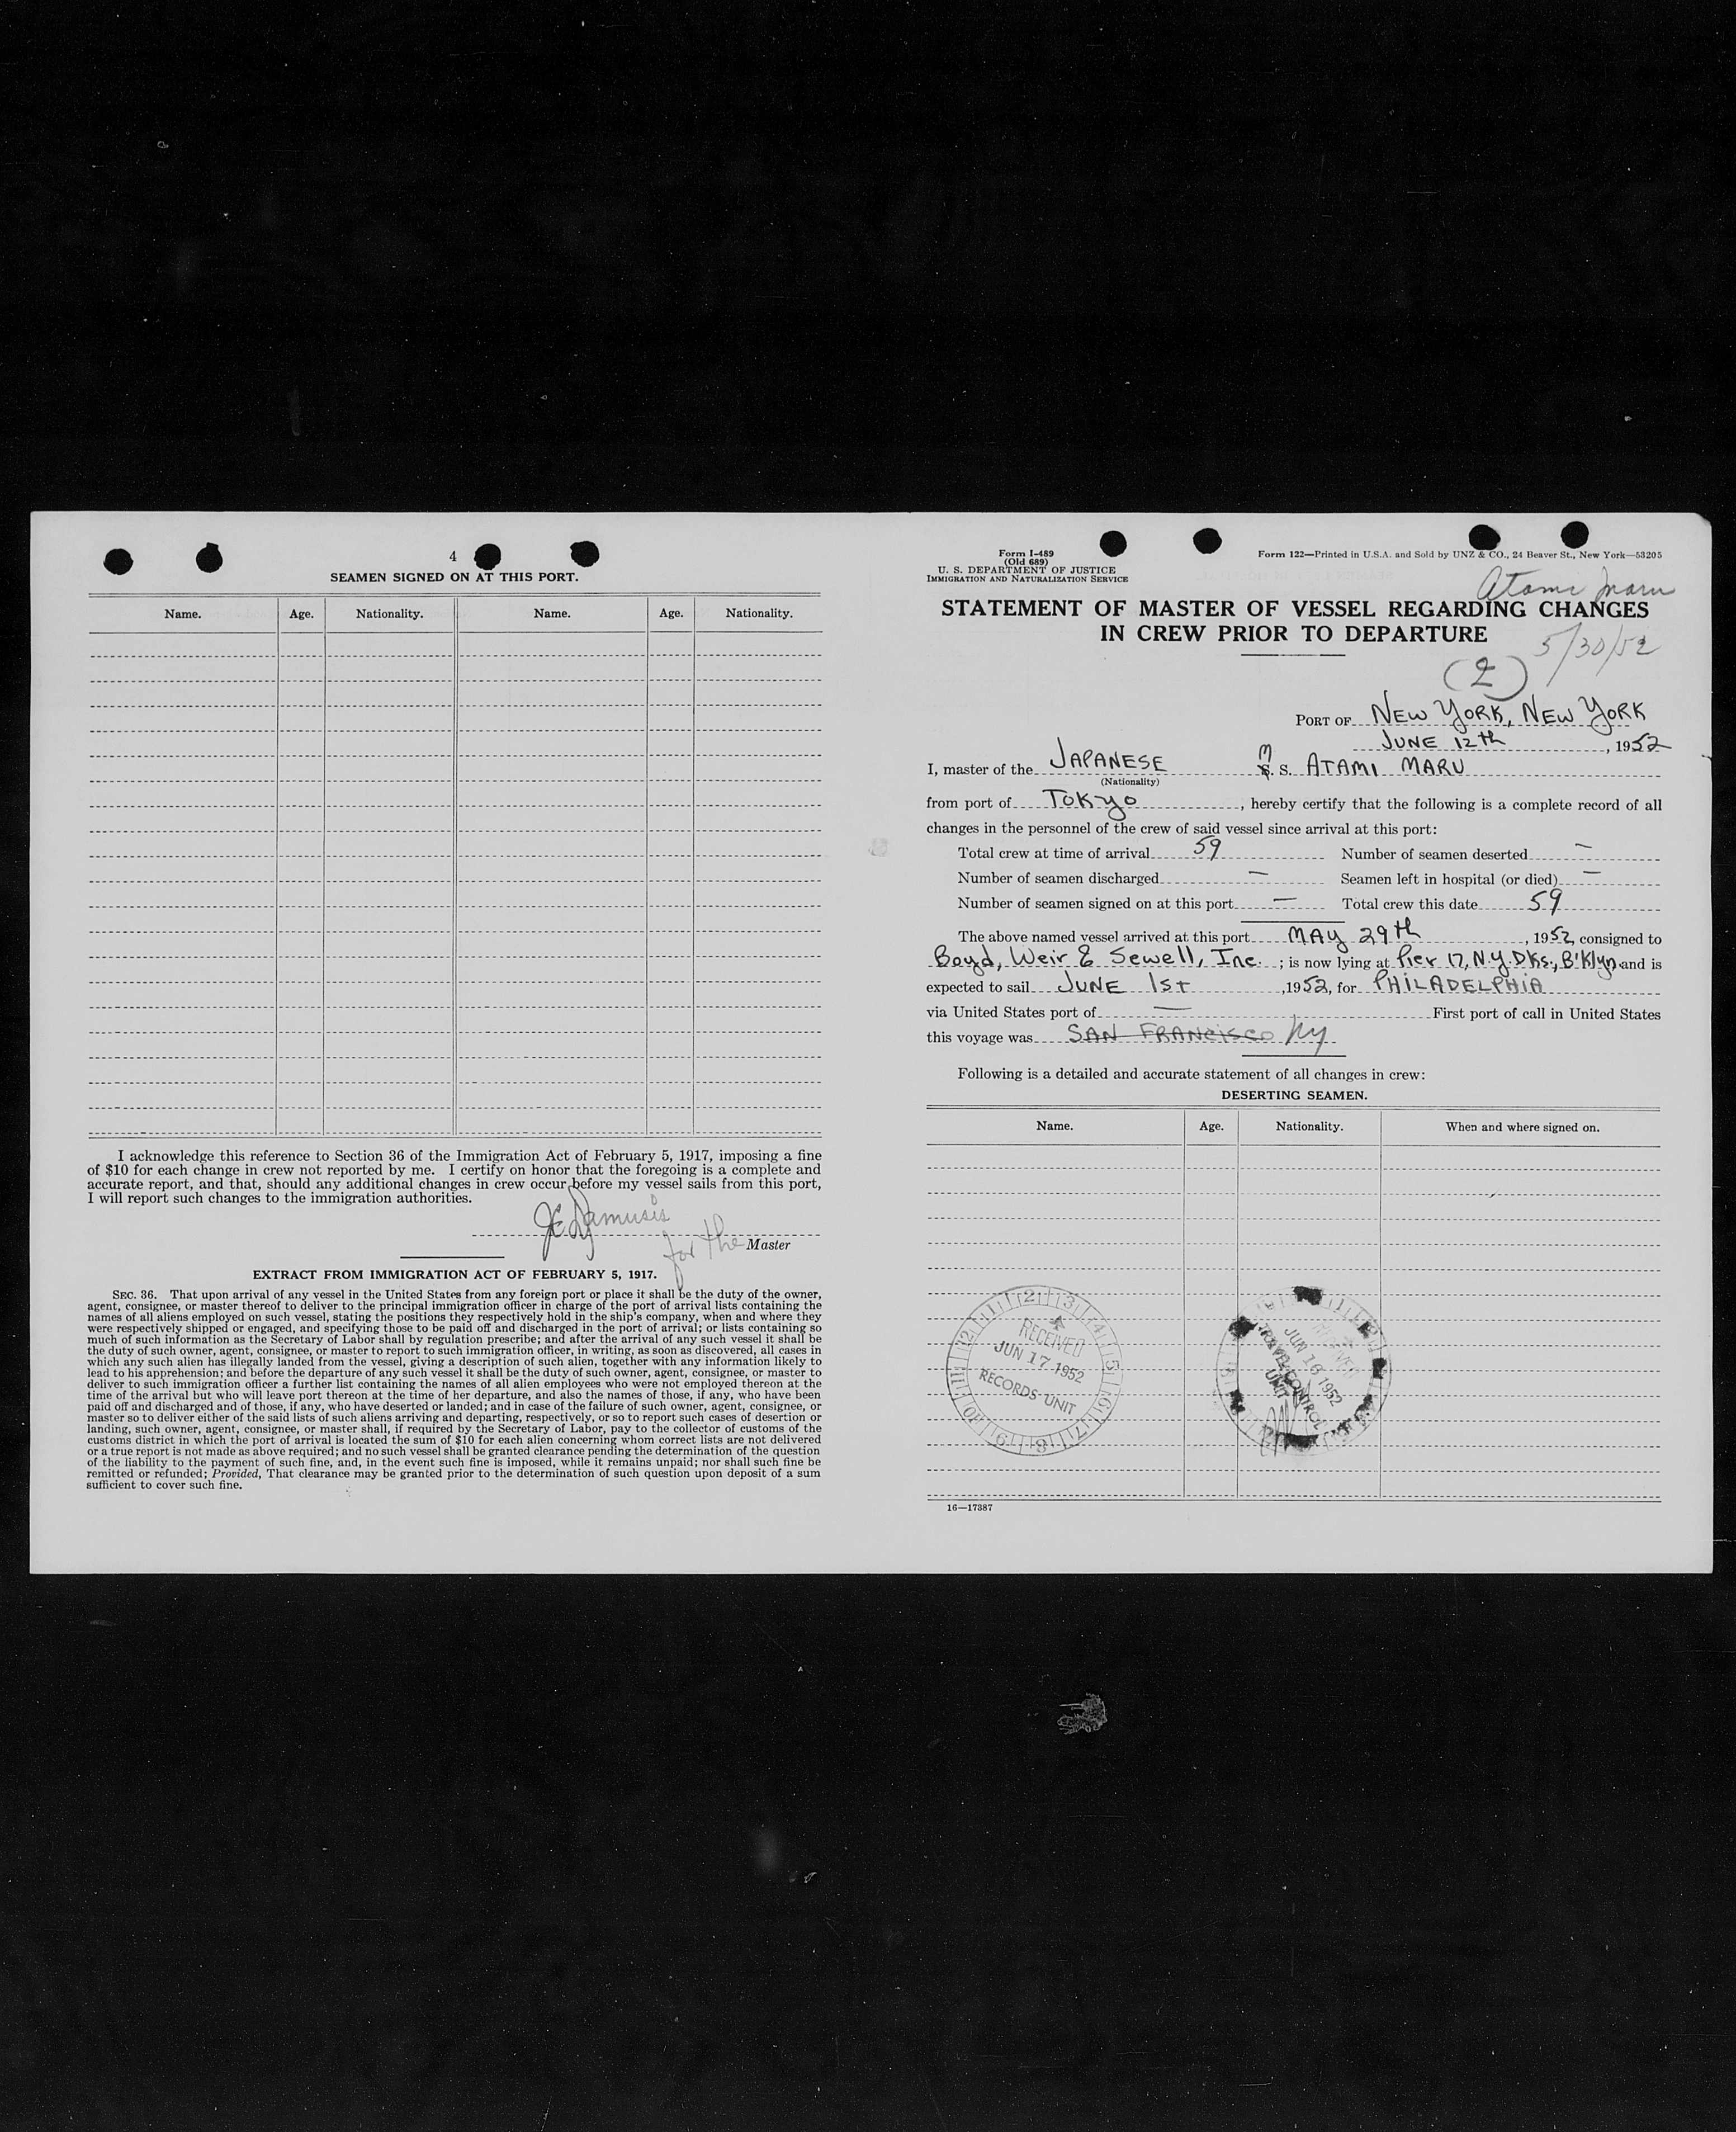 4
SEAMEN SIGNED ON AT THIS PORT.
Name. Age. Nationality. Name. Age. Nationality.
I acknowledge this reference to Section 36 of the Immigration Act of February 5, 1917, imposing a fine
of $10 for each change in crew not reported by me. I certify on honor that the foregoing is a complete and
accurate report, and that, should any additional changes in crew occur before my vessel sails from this port,
I will report such changes to the immigration authorities.
for the Master
EXTRACT FROM IMMIGRATION ACT OF FEBRUARY 5, 1917.
SEC. 36. That upon arrival of any vessel in the United States from any foreign port or place it shall be the duty of the owner,
agent, consignee, or master thereof to deliver to the principal immigration officer in charge of the port of arrival lists containing the
names of all aliens employed on such vessel, stating the positions they respectively hold in the ship's company, when and where they
were respectively shipped or engaged, and specifying those to be paid off and discharged in the port of arrival; or lists containing so
much of such information as the Secretary of Labor shall by regulation prescribe; and after the arrival of any such vessel it shall be
the duty of such owner, agent, consignee, or master to report to such immigration officer, in writing, as soon as discovered, all cases in
which any such alien has illegally landed from the vessel, giving a description of such alien, together with any information likely to
lead to his apprehension; and before the departure of any such vessel it shall be the duty of such owner, agent, consignee, or master to
deliver to such immigration officer a further list containing the names of all alien employees who were not employed thereon at the
time of the arrival but who will leave port thereon at the time of her departure, and also the names of those, if any, who have been
paid off and discharged and of those, if any, who have deserted or landed; and in case of the failure of such owner, agent, consignee, or
master so to deliver either of the said lists of such aliens arriving and departing, respectively, or so to report such cases of desertion or
landing, such owner, agent, consignee, or master shall, if required by the Secretary of Labor, pay to the collector of customs of the
customs district in which the port of arrival is located the sum of $10 for each alien concerning whom correct lists are not delivered
or a true report is not made as above required; and no such vessel shall be granted clearance pending the determination of the question
of the liability to the payment of such fine, and, in the event such fine is imposed, while it remains unpaid; nor shall such fine be
remitted or refunded; Provided, That clearance may be granted prior to the determination of such question upon deposit of a sum
sufficient to cover such fine.
Form I-489
(Old 689)
U. S. DEPARTMENT OF JUSTICE
IMMIGRATION AND NATURALIZATION SERVICE
Form 122—Printed in U.S.A. and Sold by UNZ & CO., 24 Beaver St., New York—53205
Atami Maru
STATEMENT OF MASTER OF VESSEL REGARDING CHANGES
IN CREW PRIOR TO DEPARTURE
5/30/52
(2)
PORT OF NEW YORK, NEW YORK
JUNE 12th, 1952
I, master of the JAPANESE M S. S. ATAMI MARU
(Nationality)
from port of TOKYO, hereby certify that the following is a complete record of all
changes in the personnel of the crew of said vessel since arrival at this port:
Total crew at time of arrival 59 Number of seamen deserted —
Number of seamen discharged — Seamen left in hospital (or died) —
Number of seamen signed on at this port — Total crew this date 59
The above named vessel arrived at this port MAY 29th, 1952, consigned to
Boyd, Weir & Sewell, Inc. ; is now lying at Pier 17, N.Y. Dks., B'Klyn and is
expected to sail JUNE 1st, 1952, for PHILADELPHIA
via United States port of — First port of call in United States
this voyage was SAN FRANCISCO NY
Following is a detailed and accurate statement of all changes in crew:
DESERTING SEAMEN.
Name. Age. Nationality. When and where signed on.
RECEIVED
JUN 17 1952
RECORDS UNIT
RECEIVED
JUN 16 1952
TRAVEL CONTROL
UNIT
16—17387